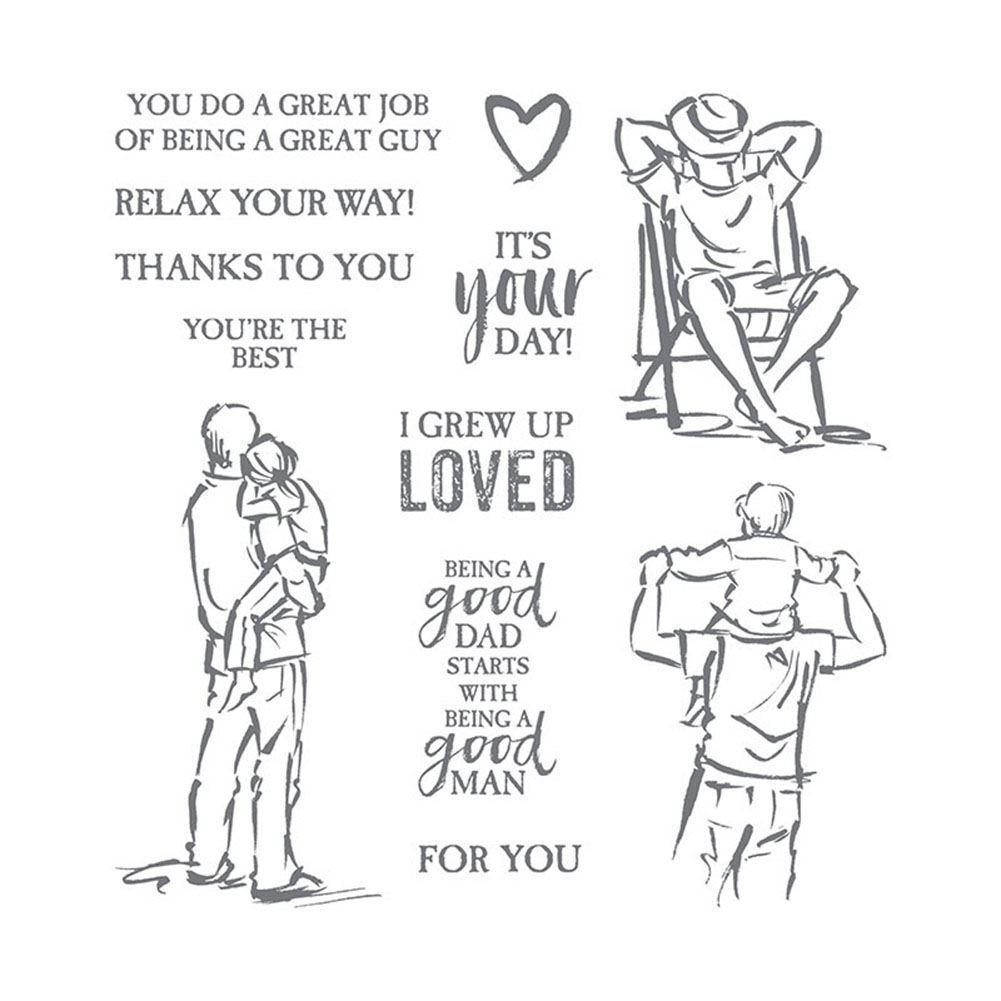 YOU DO A GREAT JOB
OF BEING A GREAT GUY
RELAX YOUR WAY!
THANKS TO YOU
YOU'RE THE
BEST
IT'S
your
DAY!
I GREW UP
LOVED
BEING A
good
DAD
STARTS
WITH
BEING A
good
MAN
FOR YOU